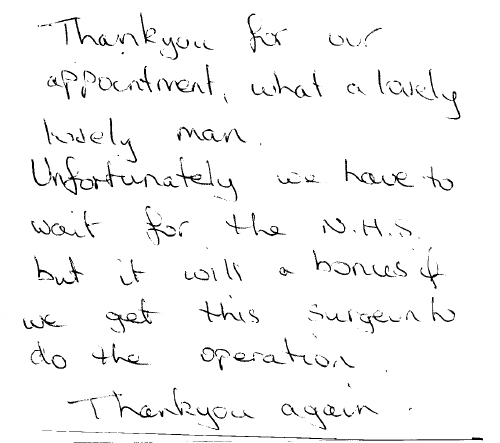 Thankyou for our
appointment, what a lovely
lovely man.
Unfortunately we have to
wait for the N.H.S.
but it will a bonus if
we get this surgeon to
do the operation.
Thankyou again.